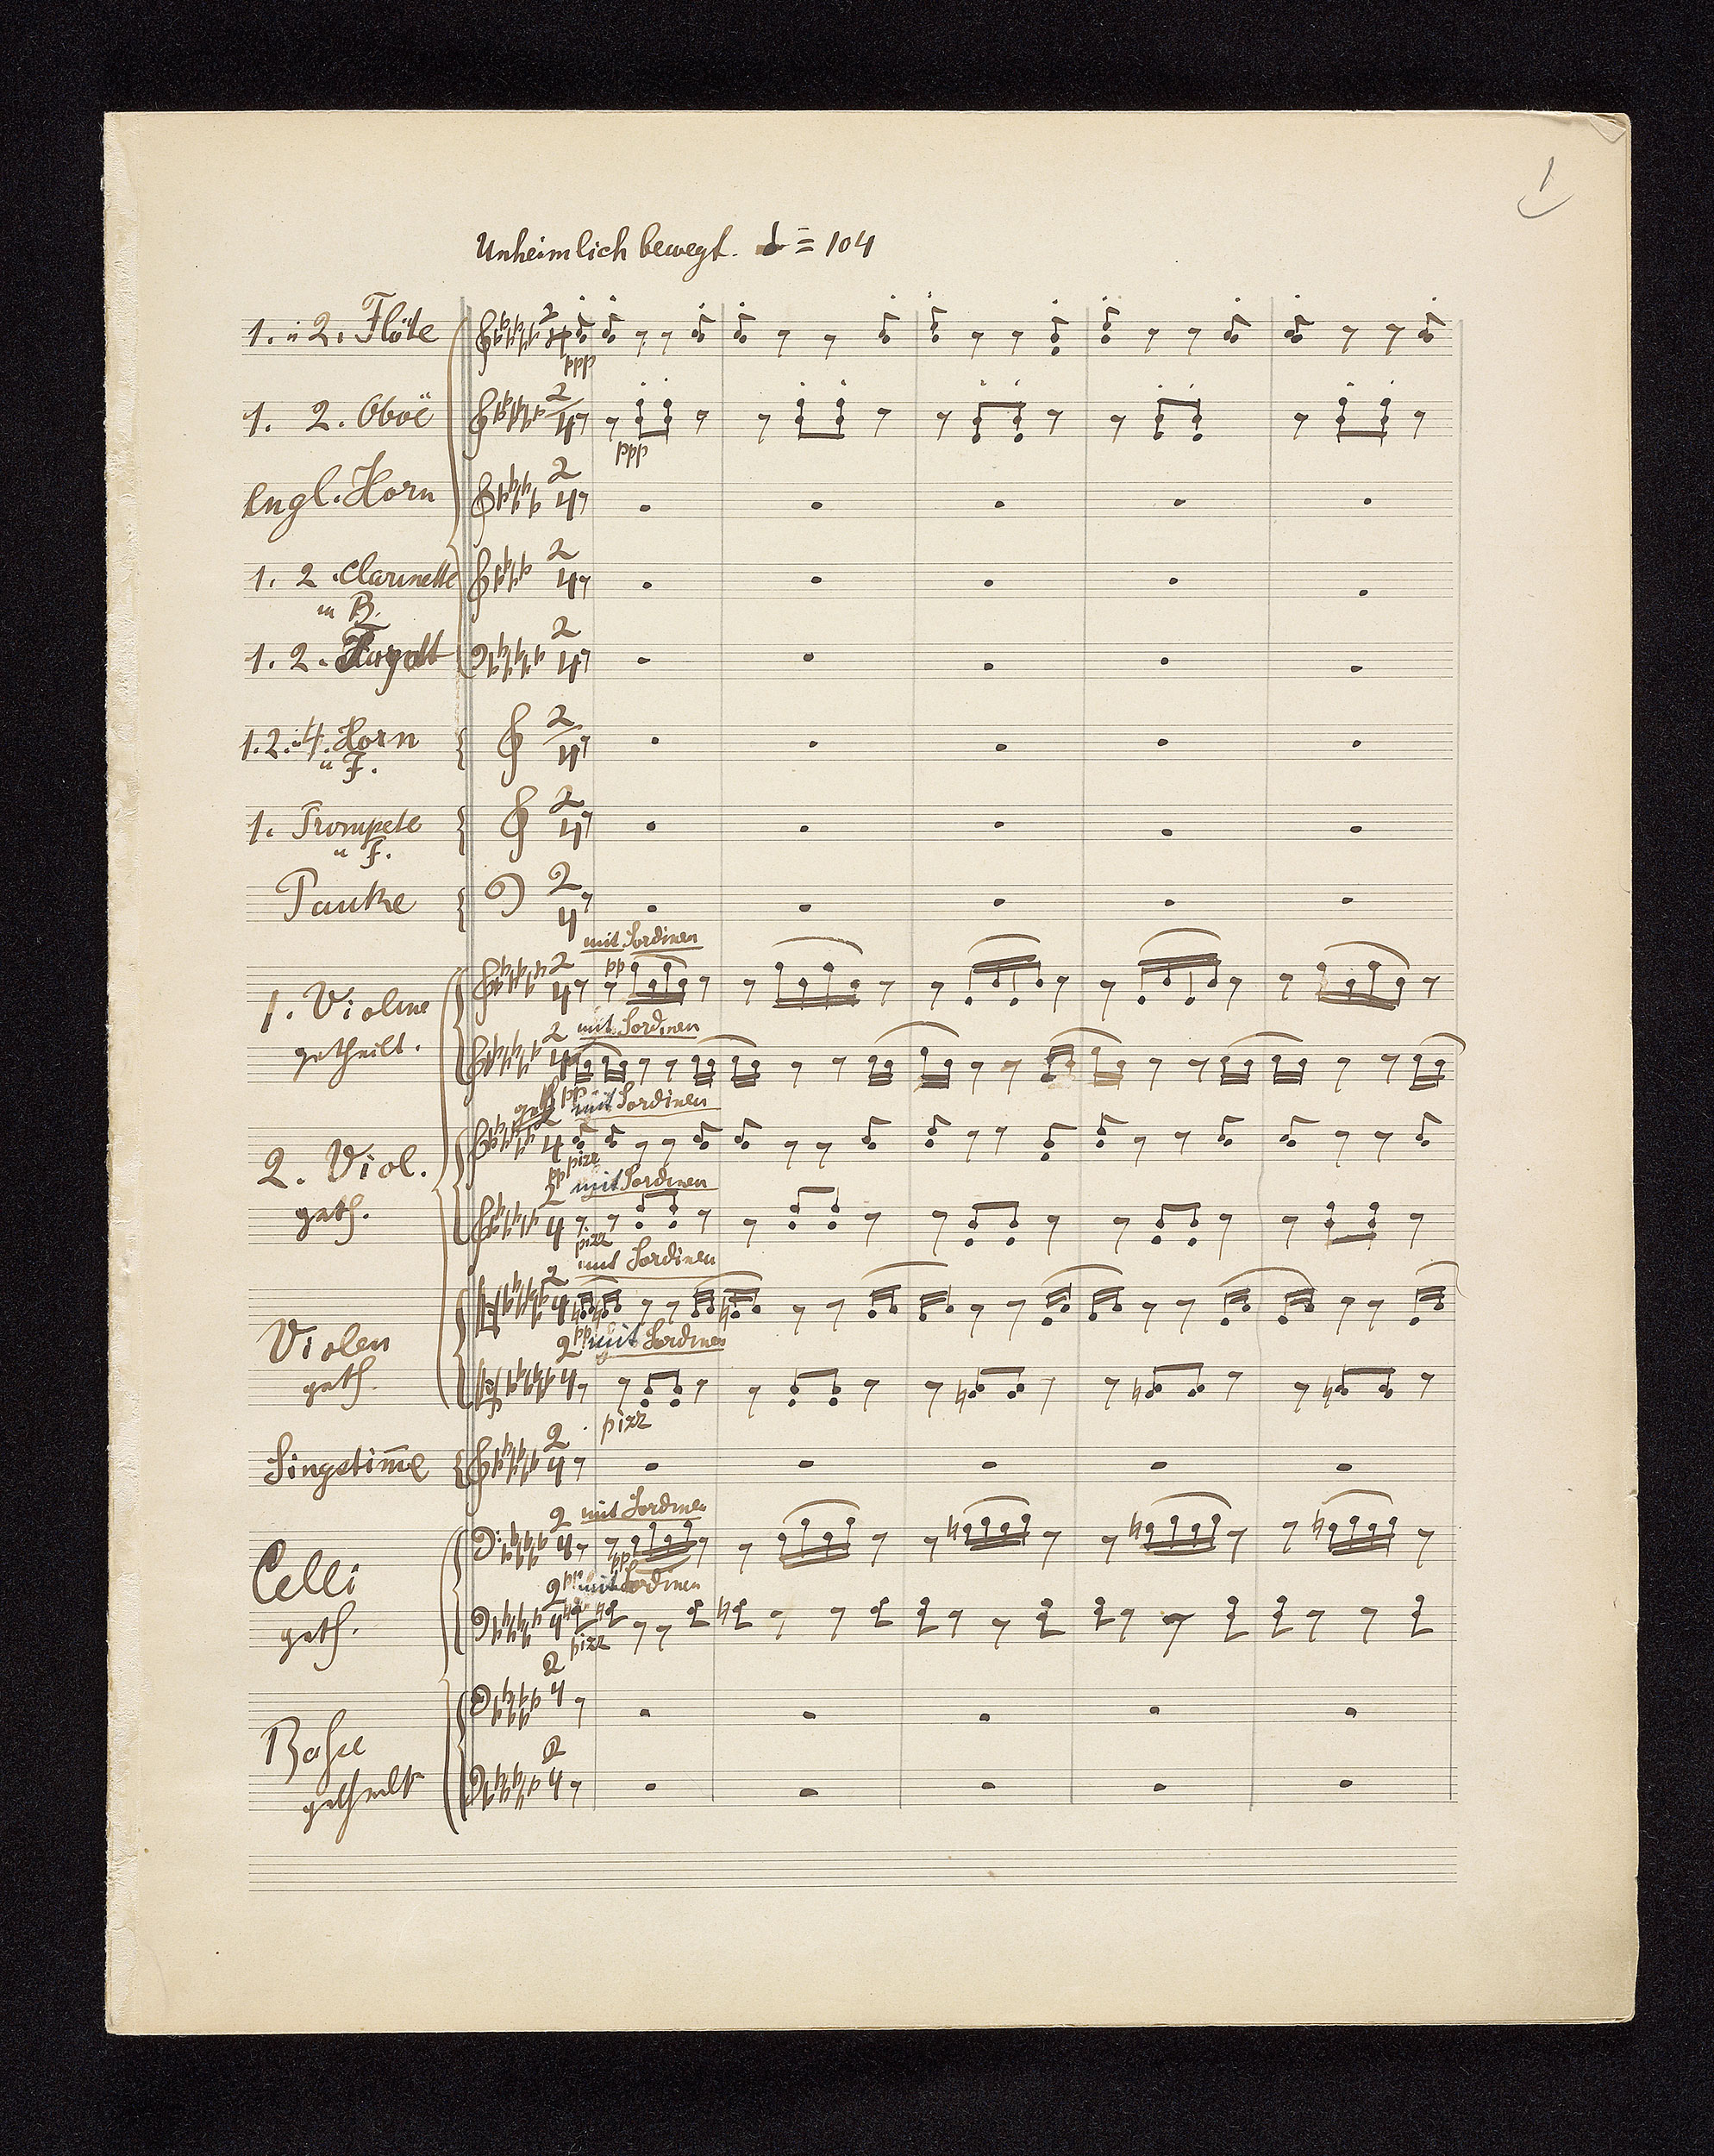 1
Unheimlich bewegt. ♩ = 104
1. u 2. Flöte
ppp
1. 2. Oboë
ppp
Engl. Horn
1. 2. Clarinette
in B.
1. 2. Fagott
1. 2. u 4. Horn
in F.
1. Trompete
in F.
Pauke
mit Sordinen
pp
1. Violine
getheilt.
mit Sordinen
pp
geth mit Sordinen
2. Viol.
geth.
pp pizz
mit Sordinen
pizz
mit Sordinen
Violen
geth.
pp mit Sordinen
pizz
Singstim̄e
mit Sordinen
pp
Celli
geth.
pp mit Sordinen
pizz
Basse
getheilt